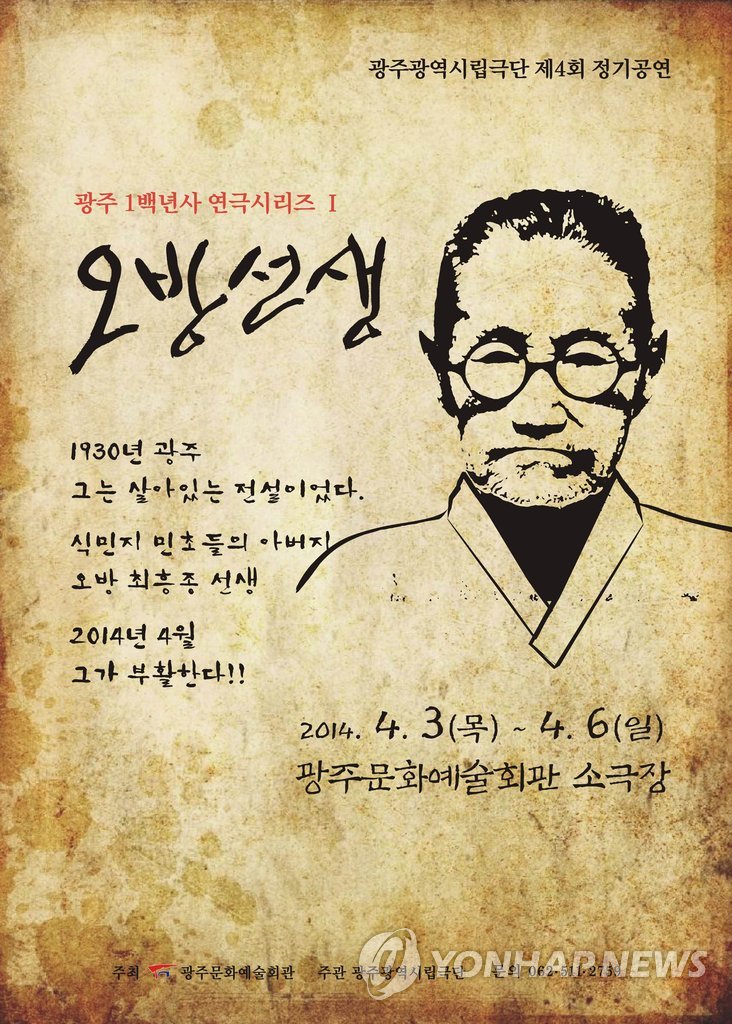 광주광역시립극단 제4회 정기공연
광주 1백년사 연극시리즈 I
오방선생
1930년 광주
그는 살아있는 전설이었다.
식민지 민초들의 아버지
오방 최흥종 선생
2014년 4월
그가 부활한다!!
2014. 4. 3(목) ~ 4. 6(일)
광주문화예술회관 소극장
주최 광주문화예술회관 주관 광주광역시립극단 문의 062·511·2759
YONHAP NEWS